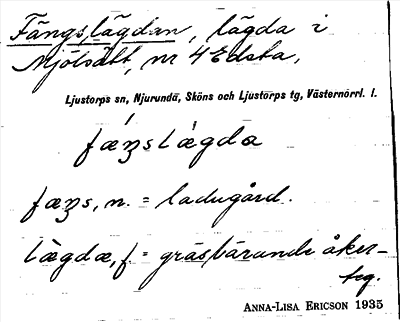 Fängslägdan, lägda i
Mjölsätt, nr 4 Edsta,
Ljustorps sn, Njurunda, Sköns och Ljustorps tg, Västernorrl. l.
fæŋslægda
fæŋs, n. = ladugård.
lægdæ, f = gräsbärande åker-
teg.
ANNA-LISA ERICSON 1935